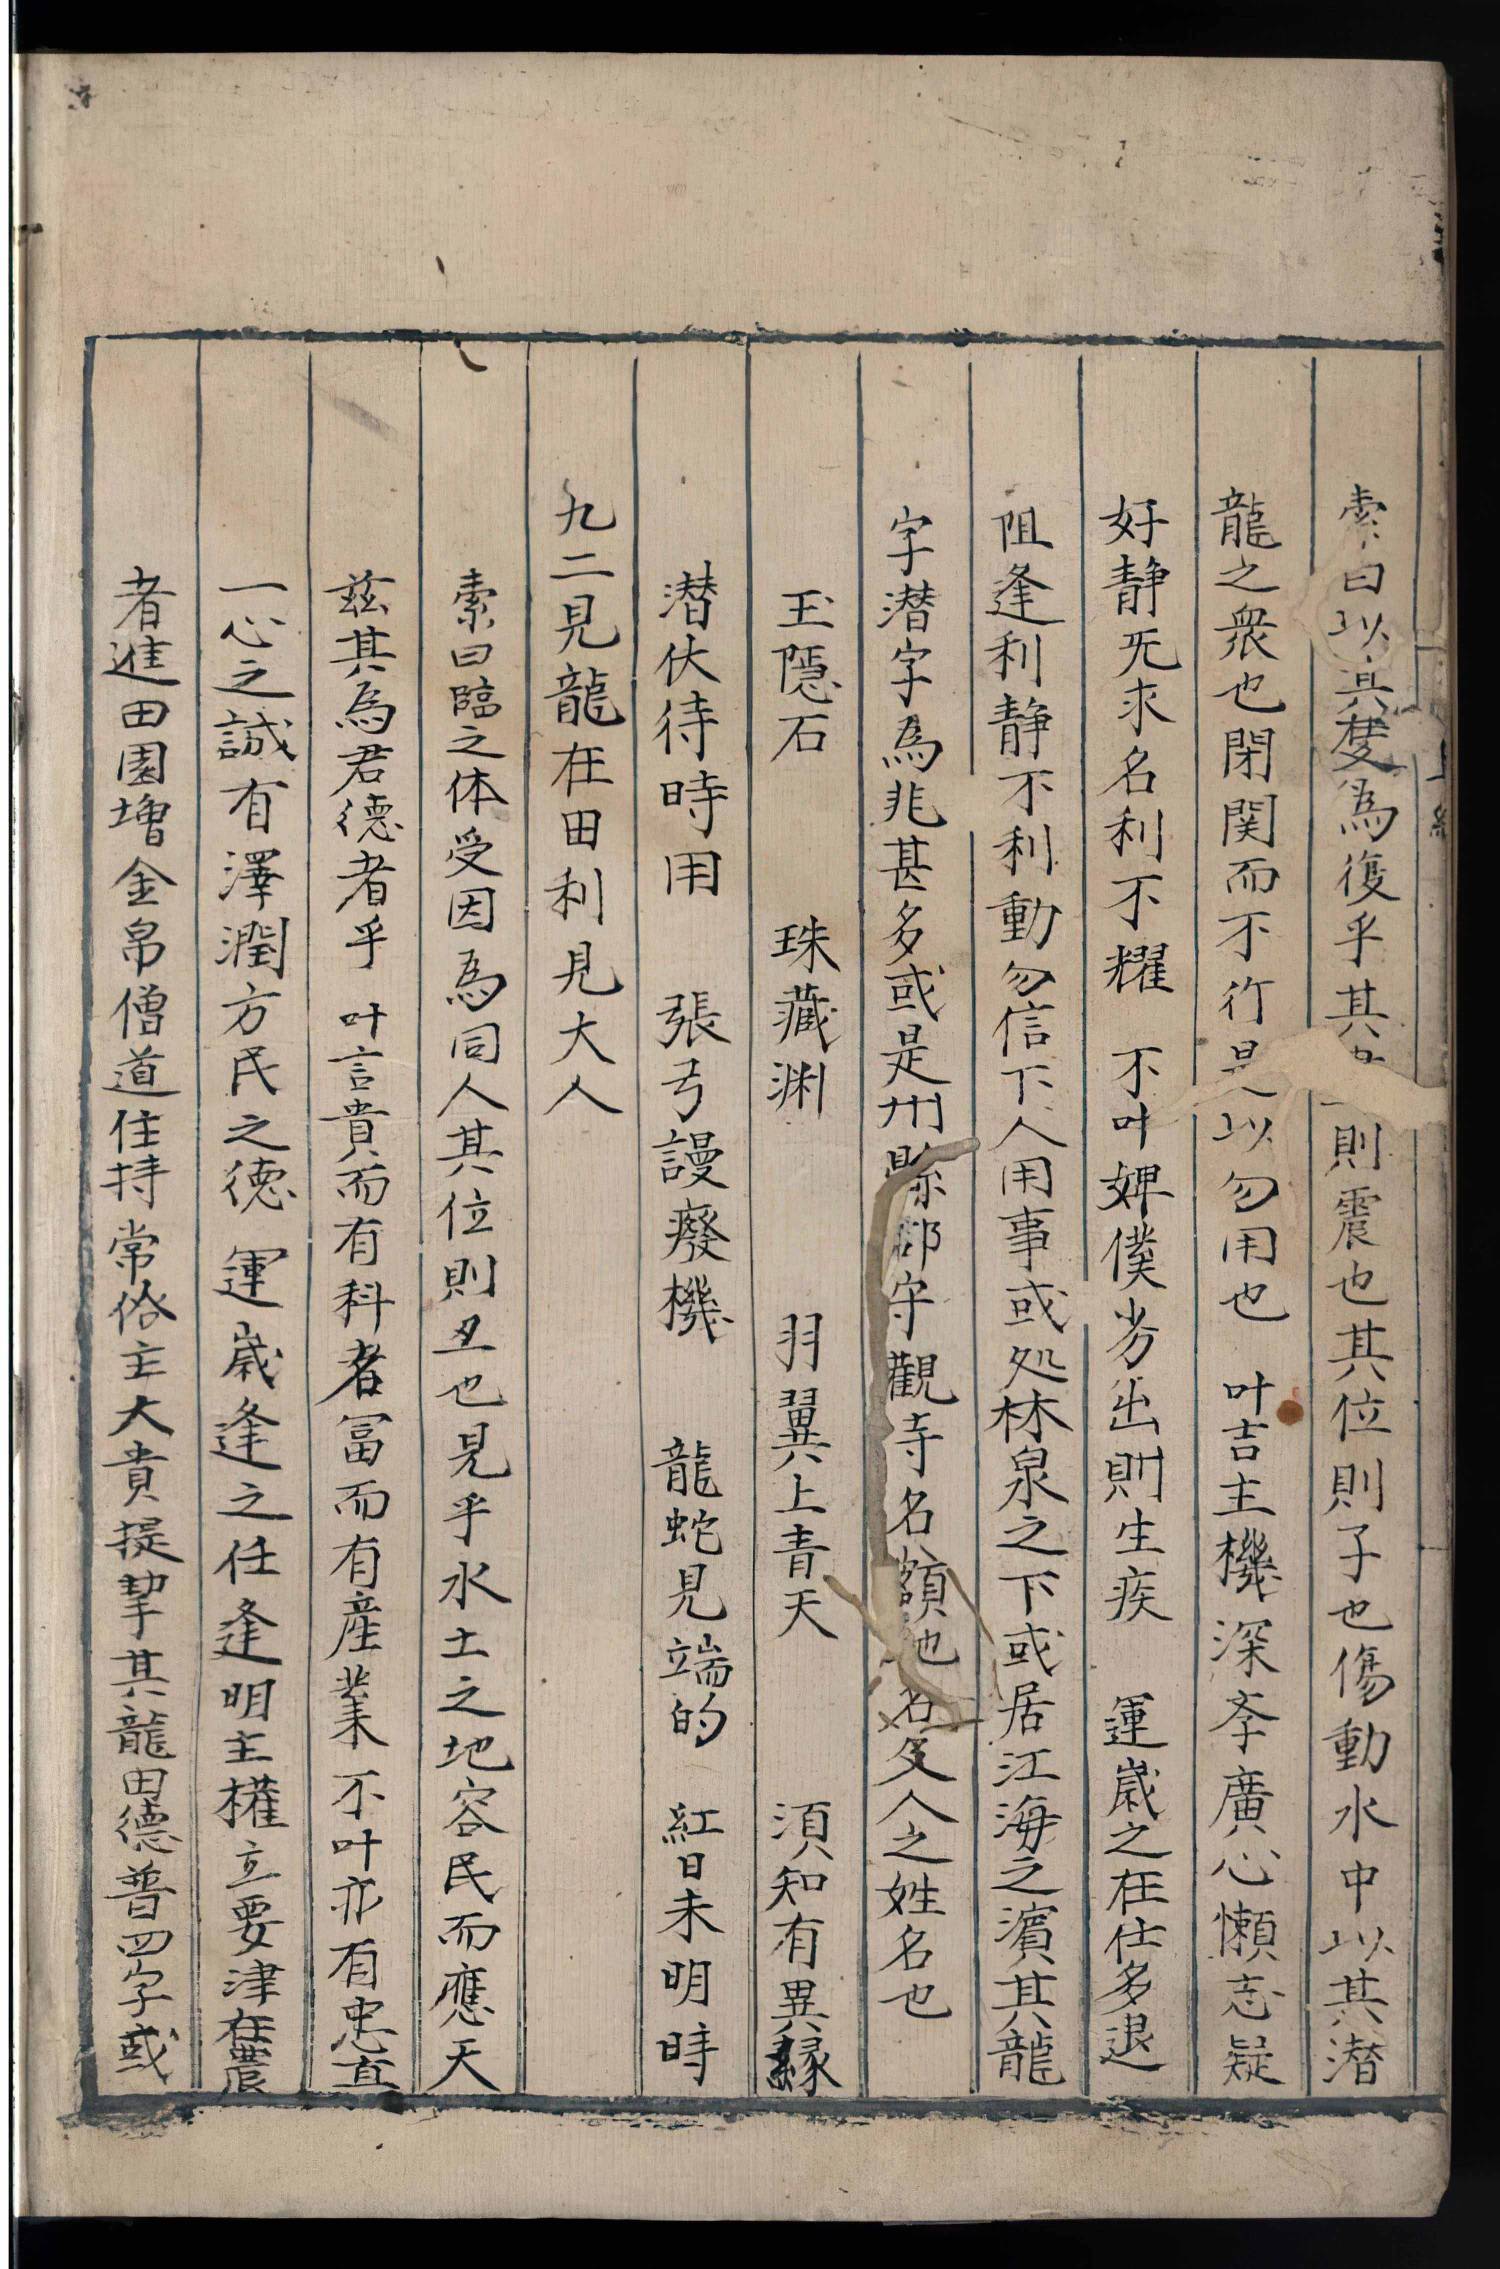 索曰以其變為復乎其則震也其位則子也傷動水中以其潜
龍之衆也閉関而不行是以勿用也 叶吉主機深李廣心懶志疑
好静旡求名利不耀 不叶婢僕劣出則生疾 運歲之在仕多退
阻逢利静不利動勿信下人用事或処林泉之下或居江海之濵其龍
字潜字為兆甚多或是州縣郡守觀寺名額也名又人之姓名也
玉隱石 珠藏渊 羽翼上青天 須知有異縁
潜伏待時用 張弓謾癈機 龍蛇見端的 紅日未明時
九二見龍在田利見大人
索曰臨之体受因為同人其位則丑也見乎水土之地容民而應天
兹其為君德者乎 叶言貴而有科者冨而有産業不叶亦有忠直
一心之誠有澤潤方民之德 運歲逢之任逢明主權立要津在農
者進田園增金帛僧道住持常俗主大貴提挈其龍田德普四字或